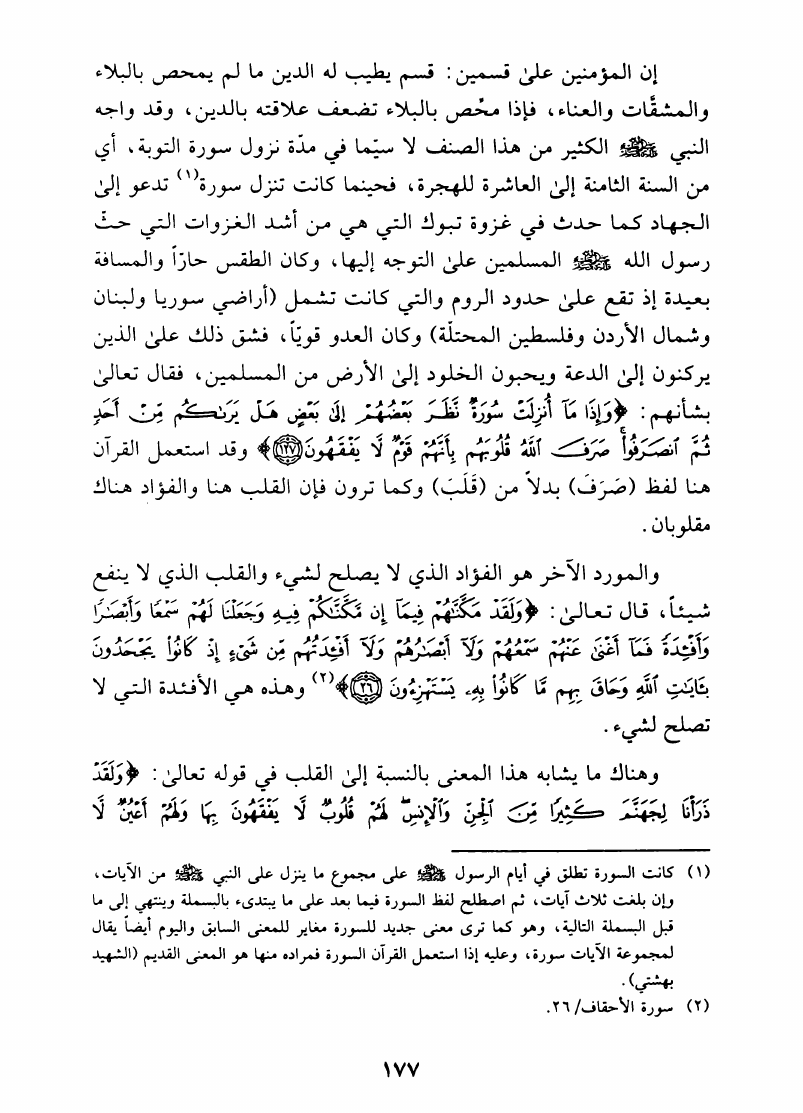 إن المؤمنين علىٰ قسمين: قسم يطيب له الدين ما لم يمحص بالبلاء
والمشقَّات والعناء، فإذا محّص بالبلاء تضعف علاقته بالدين، وقد واجه
النبي ﷺ الكثير من هذا الصنف لا سيّما في مدّة نزول سورة التوبة، أي
من السنة الثامنة إلىٰ العاشرة للهجرة، فحينما كانت تنزل سورة(١) تدعو إلىٰ
الجهاد كما حدث في غزوة تبوك التي هي من أشد الغزوات التي حثّ
رسول الله ﷺ المسلمين علىٰ التوجه إليها، وكان الطقس حارّاً والمسافة
بعيدة إذ تقع علىٰ حدود الروم والتي كانت تشمل (أراضي سوريا ولبنان
وشمال الأردن وفلسطين المحتلّة) وكان العدو قويّاً، فشق ذلك علىٰ الذين
يركنون إلىٰ الدعة ويحبون الخلود إلىٰ الأرض من المسلمين، فقال تعالىٰ
بشأنهم: ﴿وَإِذَا مَآ أُنزِلَتْ سُورَةٌ نَّظَرَ بَعْضُهُمْ إِلَىٰ بَعْضٍ هَلْ يَرَىٰكُم مِّنْ أَحَدٍ
ثُمَّ ٱنصَرَفُوا۟ۚ صَرَفَ ٱللَّهُ قُلُوبَهُم بِأَنَّهُمْ قَوْمٌ لَّا يَفْقَهُونَ ١٢٧﴾ وقد استعمل القرآن
هنا لفظ (صَرَفَ) بدلاً من (قَلَبَ) وكما ترون فإن القلب هنا والفؤاد هناك
مقلوبان.
والمورد الآخر هو الفؤاد الذي لا يصلح لشيء والقلب الذي لا ينفع
شيئاً، قال تعالىٰ: ﴿وَلَقَدْ مَكَّنَّٰهُمْ فِيمَآ إِن مَّكَّنَّٰكُمْ فِيهِ وَجَعَلْنَا لَهُمْ سَمْعًا وَأَبْصَٰرًا
وَأَفْـِٔدَةً فَمَآ أَغْنَىٰ عَنْهُمْ سَمْعُهُمْ وَلَآ أَبْصَٰرُهُمْ وَلَآ أَفْـِٔدَتُهُم مِّن شَىْءٍ إِذْ كَانُوا۟ يَجْحَدُونَ
بِـَٔايَٰتِ ٱللَّهِ وَحَاقَ بِهِم مَّا كَانُوا۟ بِهِۦ يَسْتَهْزِءُونَ ٢٦﴾(٢) وهذه هي الأفئدة التي لا
تصلح لشيء.
وهناك ما يشابه هذا المعنى بالنسبة إلىٰ القلب في قوله تعالىٰ: ﴿وَلَقَدْ
ذَرَأْنَا لِجَهَنَّمَ كَثِيرًا مِّنَ ٱلْجِنِّ وَٱلْإِنسِۖ لَهُمْ قُلُوبٌ لَّا يَفْقَهُونَ بِهَا وَلَهُمْ أَعْيُنٌ لَّا
(١) كانت السورة تطلق في أيام الرسول ﷺ على مجموع ما ينزل على النبي ﷺ من الآيات،
وإن بلغت ثلاث آيات، ثم اصطلح لفظ السورة فيما بعد على ما يبتدىء بالبسملة وينتهي إلى ما
قبل البسملة التالية، وهو كما ترى معنى جديد للسورة مغاير للمعنى السابق واليوم أيضاً يقال
لمجموعة الآيات سورة، وعليه إذا استعمل القرآن السورة فمراده منها هو المعنى القديم (الشهيد
بهشتي).
(٢) سورة الأحقاف/٢٦.
١٧٧